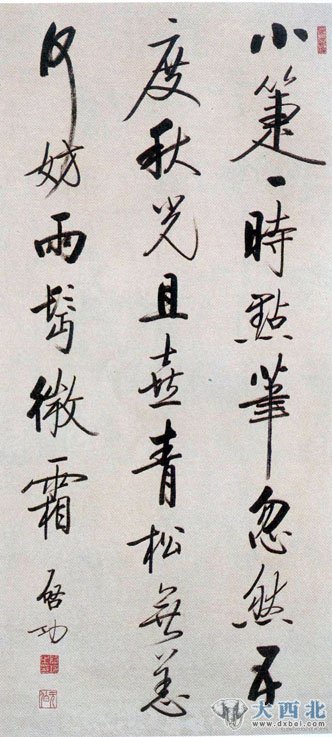 小箑一時點筆忽然五
度秋光且喜青松無恙
何妨兩鬢微霜
启功
大西北
www.dxbei.com